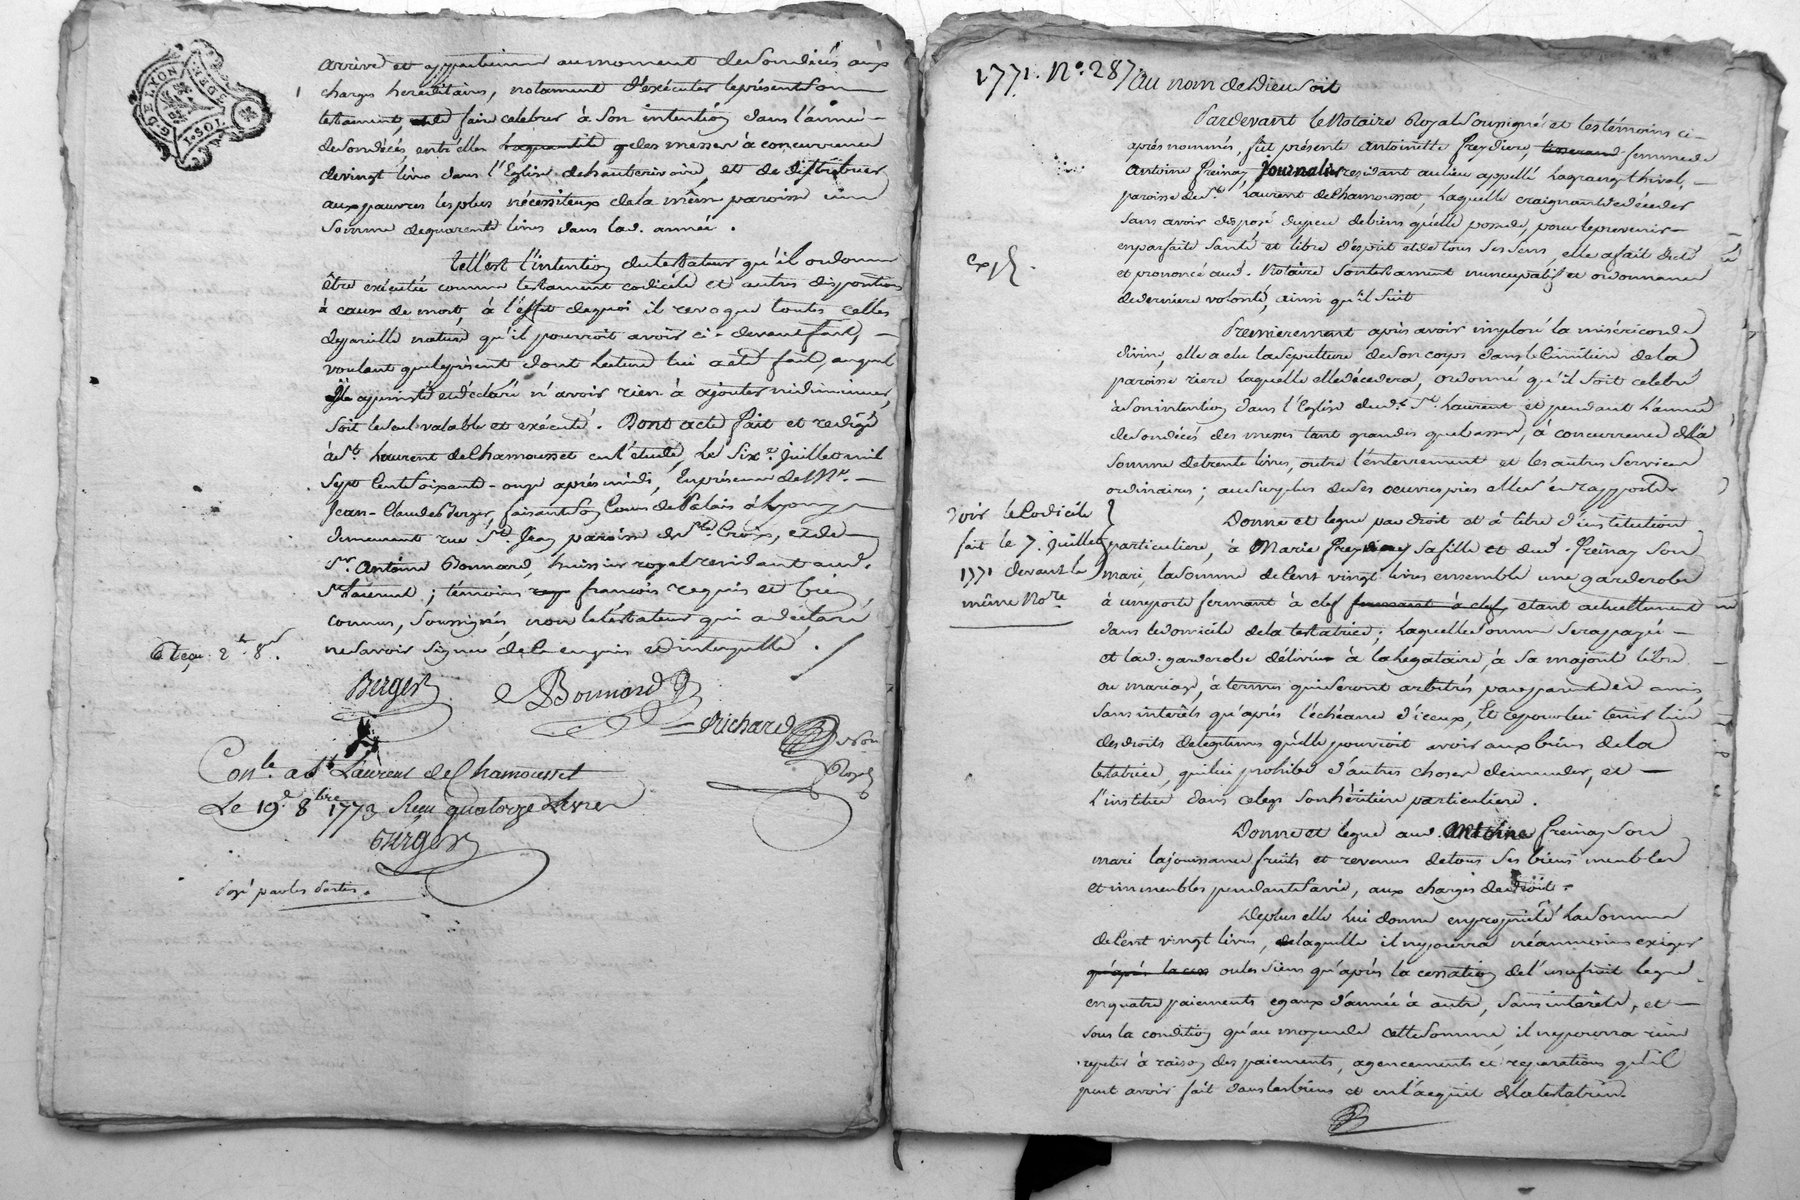 G. DE LYON
1. SOL
DEN.
arrivé et appartiennne au moment de son décès aux
charges hereditaires, notament d'exécuter le présent son
testament, faire celebrer à son intention dans l'année
de son décès, entr'elles laquantité q. des messes à concurrence
de vingt livres dans l'Eglise de hauterivoire, et de distribuer
aux pauvres les plus nécessiteux de la même paroisse une
somme de quarante livres dans lad. année.
tell'est l'intention du testateur qu'il ordonne
être exécutée comme testament codicile et autres dispositions
à cause de mort, à l'effet de quoi il revoque toutes celles
de pareille nature qu'il pourroit avoir ci-devant fait,
voulant que le présent dont lecture lui a été fait, auquel
il a persisté et déclaré n'avoir rien à ajouter ni diminuer,
soit le seul valable et exécuté. Dont acte fait et redigé
à St. Laurent de Chamousset en l'étude, le six e. juillet mil
sept cent soixante-onze après midi, en présence de Mr.
Jean-Claude Berger, faisant son cours de Palais à Lyon y
demeurant rue St. Jean paroisse de Ste. Croix, et de
Sr. Antoine Bonnard, huissier royal residant aud.
St. Laurent; témoins françois requis et bien
connus, soussignés, non le testateur qui a déclaré
ne savoir signer de ce enquis et interpellé.
Reçu 2 tt 8 s.
Berger Bonnard
Richard Nore
Royal
Con.le a St Laurent de Chamousset
Le 19e. 8bre 1773 Reçu quatorze Livres
Berger
payé par les parties.
1771. No. 287
Au nom de Dieu soit
Pardevant le Notaire Royal soussigné et les témoins ci-
après nommés, fut présente Antoinette Freydiere, tisserand femme de
Antoine Freinay journalier residant au lieu appellé Lagrange thivel,
paroisse de St. Laurent de Chamousset, Laquelle craignant de deceder
sans avoir disposé du peu de biens qu'elle possede, pour le prevenir
en parfaite santé et libre d'esprit et de tous ses sens, elle a fait dicté
et prononcé aud. Notaire son testament nuncupatif et ordonnance
de derniere volonté, ainsi qu'il suit
exp.
Premierement après avoir imploré la miséricorde
divine, elle a elu la sépulture de son corps dans le Cimetiere de la
paroisse riere laquelle elle décedera, ordonné qu'il soit celebré
à son intention dans l'Eglise dud. St. Laurent et pendant l'année
de son décès des messes tant grandes que basses, à concurrence de la
somme de trente livres, outre l'enterrement et les autres services
ordinaires; au surplus de ses oeuvres pies elle s'en rapporte
Donne et legue par droit et à titre d'institution
particuliere, à Marie Freydiere sa fille et dud. Freinay son
mari, la somme de cent vingt livres ensemble une garderobe
à une porte fermant à clef fermant à clef, etant actuellement
dans le domicile de la testatrice; laquelle somme sera payée
et lad. garderobe délivrée à la legataire, à sa majorité libre
ou mariage, à termes qui seront arbitrés par parents et amis
sans interêts qu'après l'échéance d'iceux, Et ce pour lui tenir lieu
des droits de legitime qu'elle pourroit avoir aux biens de la
testatrice, qui lui prohibe d'autres choses demander, et
l'institue dans ce legs son héritiere particuliere.
Voir le Codicile
fait le 7. juillet
1771 devant le
même Nore
Donne et legue aud. Antoine Freinay son
mari la jouissance fruits et revenus de tous ses biens meubles
et immeubles pendant sa vie, aux charges de droit.
De plus elle lui donne en propriété la somme
de cent vingt livres, de laquelle il ne pourra néanmoins exiger
qu'après la ces ou les siens qu'après la cessation de l'usufruit legué
en quatre paiements egaux d'année à autre, sans interêts, et
sous la condition qu'au moyen de cette somme, il ne pourra rien
repeter à raison des paiements, agencements et reparations qu'il
peut avoir fait dans les biens et en l'acquit de la testatrice.